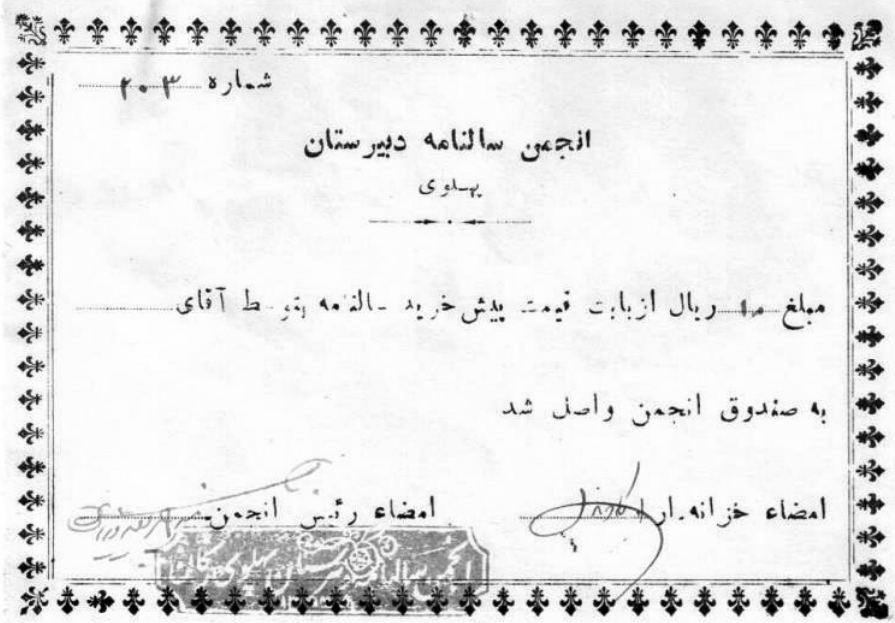 شماره ۲۰۳
انجمن سالنامه دبیرستان
پهلوی
مبلغ ۱۰ ریال از بابت قیمت پیش خرید سالنامه بتوسط آقای
به صندوق انجمن واصل شد
امضاء خزانه دار
امضاء رئیس انجمن
انجمن سالنامه دبیرستان پهلوی